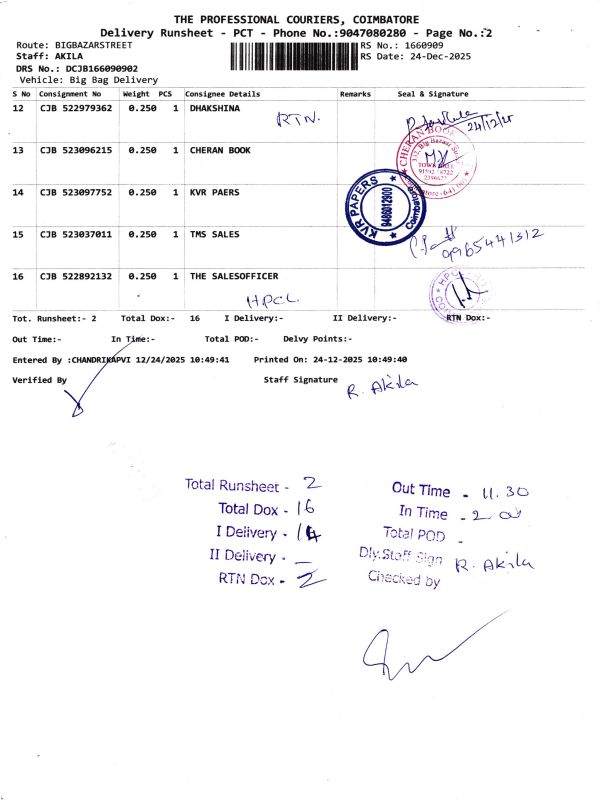 THE PROFESSIONAL COURIERS, COIMBATORE
Delivery Runsheet - PCT - Phone No.:9047080280 - Page No.:2
Route: BIGBAZARSTREET RS No.: 1660909
Staff: AKILA RS Date: 24-Dec-2025
DRS No.: DCJB166090902
Vehicle: Big Bag Delivery
S No Consignment No Weight PCS Consignee Details Remarks Seal & Signature
12 CJB 522979362 0.250 1 DHAKSHINA
RTN.
24/12/25
13 CJB 523096215 0.250 1 CHERAN BOOK
CHERAN BOOK
332, Big Bazaar St
14 CJB 523097752 0.250 1 KVR PAERS
KVR PAPERS
9486012900
Coimbatore
15 CJB 523037011 0.250 1 TMS SALES
9965441312
16 CJB 522892132 0.250 1 THE SALESOFFICER
HPCL
Tot. Runsheet:- 2 Total Dox:- 16 I Delivery:- II Delivery:- RTN Dox:-
Out Time:- In Time:- Total POD:- Delvy Points:-
Entered By :CHANDRIKAPVI 12/24/2025 10:49:41 Printed On: 24-12-2025 10:49:40
Verified By Staff Signature R. Akila
Total Runsheet - 2 Out Time - 11.30
Total Dox - 16 In Time - 2.00
I Delivery - 14 Total POD -
II Delivery - _ Dly.Staff Sign R. Akila
RTN Dox - 2 Checked by